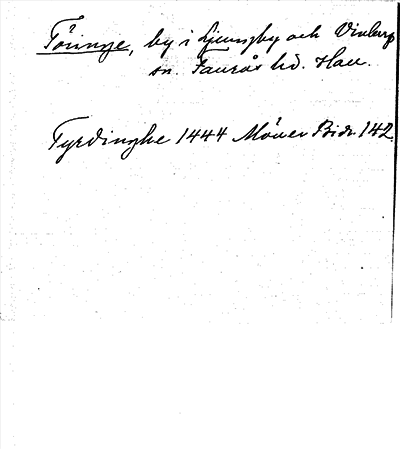 Tönnge, by i Ljungby och Vinberg
sn. Faurås hd. Hall.
Tyrdinghe 1444 Möller Bidr 142.